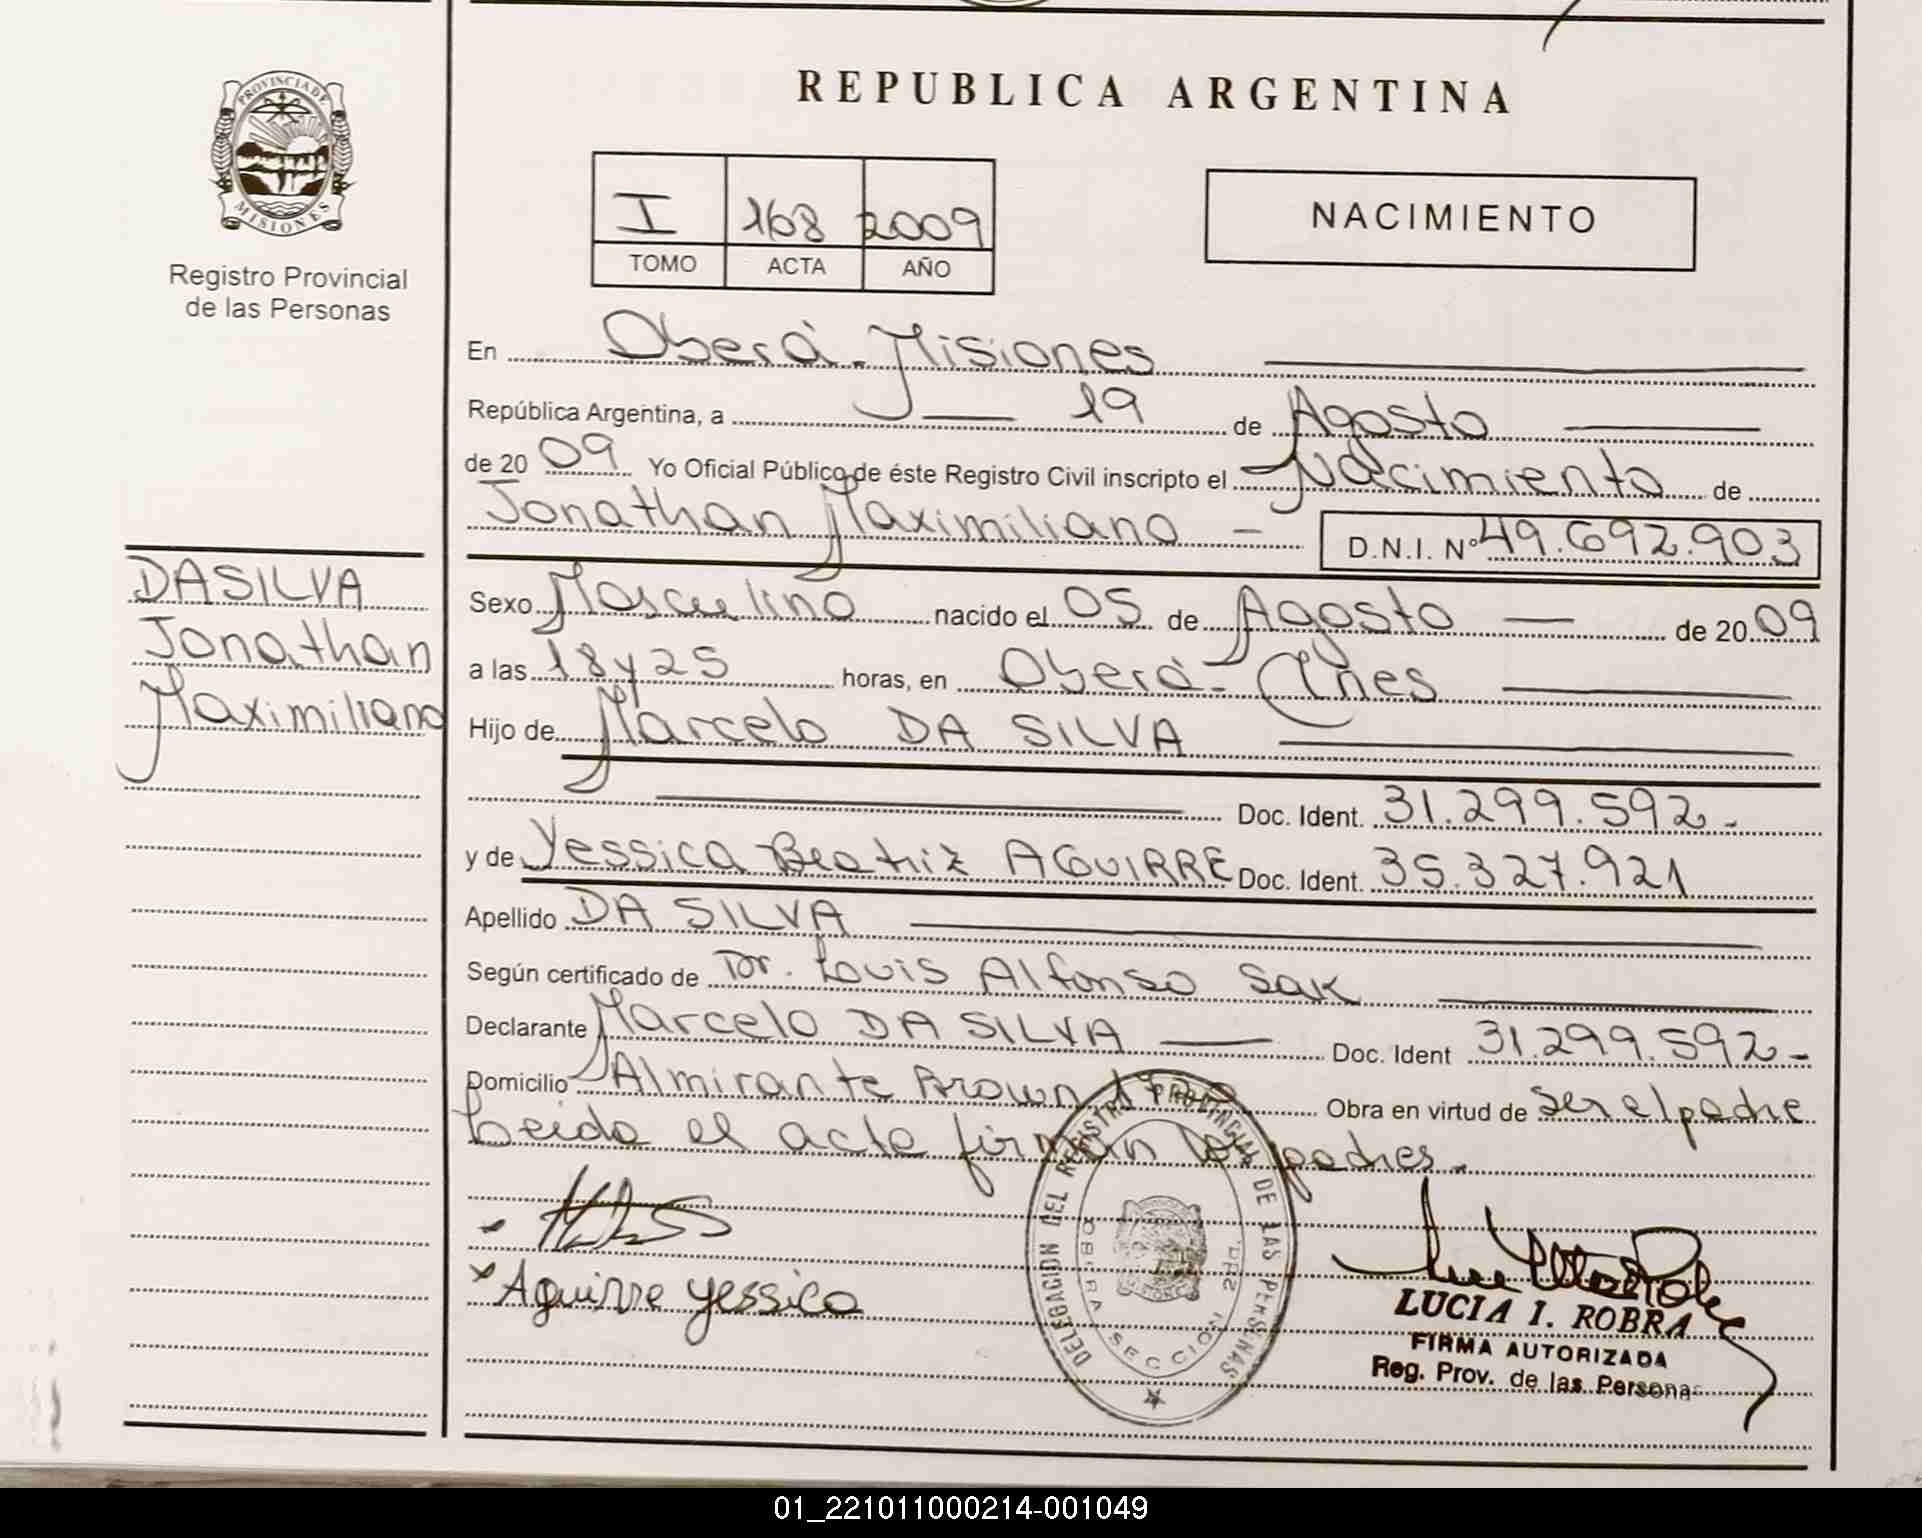 REPUBLICA ARGENTINA
PROVINCIA DE
MISIONES
Registro Provincial
de las Personas
I 168 2009
TOMO ACTA AÑO
NACIMIENTO
En Oberá - Misiones
República Argentina, a 19 de Agosto
de 20 09 Yo Oficial Público de éste Registro Civil inscripto el Nacimiento de
Jonathan Maximiliano - D.N.I. Nº 49.692.903
DA SILVA
Jonathan
Maximiliano
Sexo Masculino nacido el 05 de Agosto de 20 09
a las 18 y 25 horas, en Oberá - Mnes
Hijo de Marcelo DA SILVA
Doc. Ident. 31.299.592.-
y de Yessica Beatriz AGUIRRE Doc. Ident. 35.327.921
Apellido DA SILVA
Según certificado de Dr. Louis Alfonso Sak
Declarante Marcelo DA SILVA Doc. Ident 31.299.592.-
Domicilio Almirante Brown Obra en virtud de ser el padre
Leida el acta firman los padres.
Aguirre Yessica
DELEGACION DEL REGISTRO PROVINCIAL DE LAS PERSONAS
OBERA SECCION 2DA.
LUCIA I. ROBRA
FIRMA AUTORIZADA
Reg. Prov. de las Personas
01_221011000214-001049